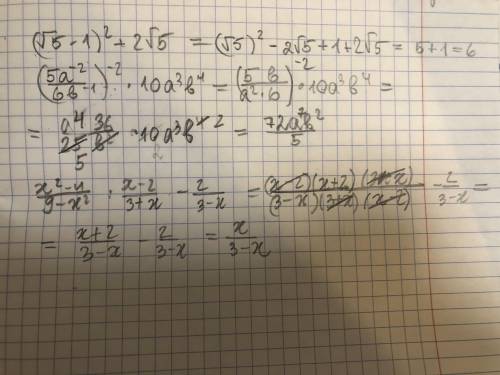 (√5 - 1)² + 2√5 = (√5)² - 2√5 + 1 + 2√5 = 5 + 1 = 6
(5a⁻²/6b⁻¹)⁻² · 10a³b⁴ = (5b/a²·6)⁻² · 10a³b⁴ =
= a⁴ 36/25 b² · 10a³b⁴ ² = 72a⁷b²/5
5
x²-4/9-x² : x-2/3+x - 2/3-x = (x-2)(x+2)(3+x)/(3-x)(3+x)(x-2) - 2/3-x =
= x+2/3-x - 2/3-x = x/3-x